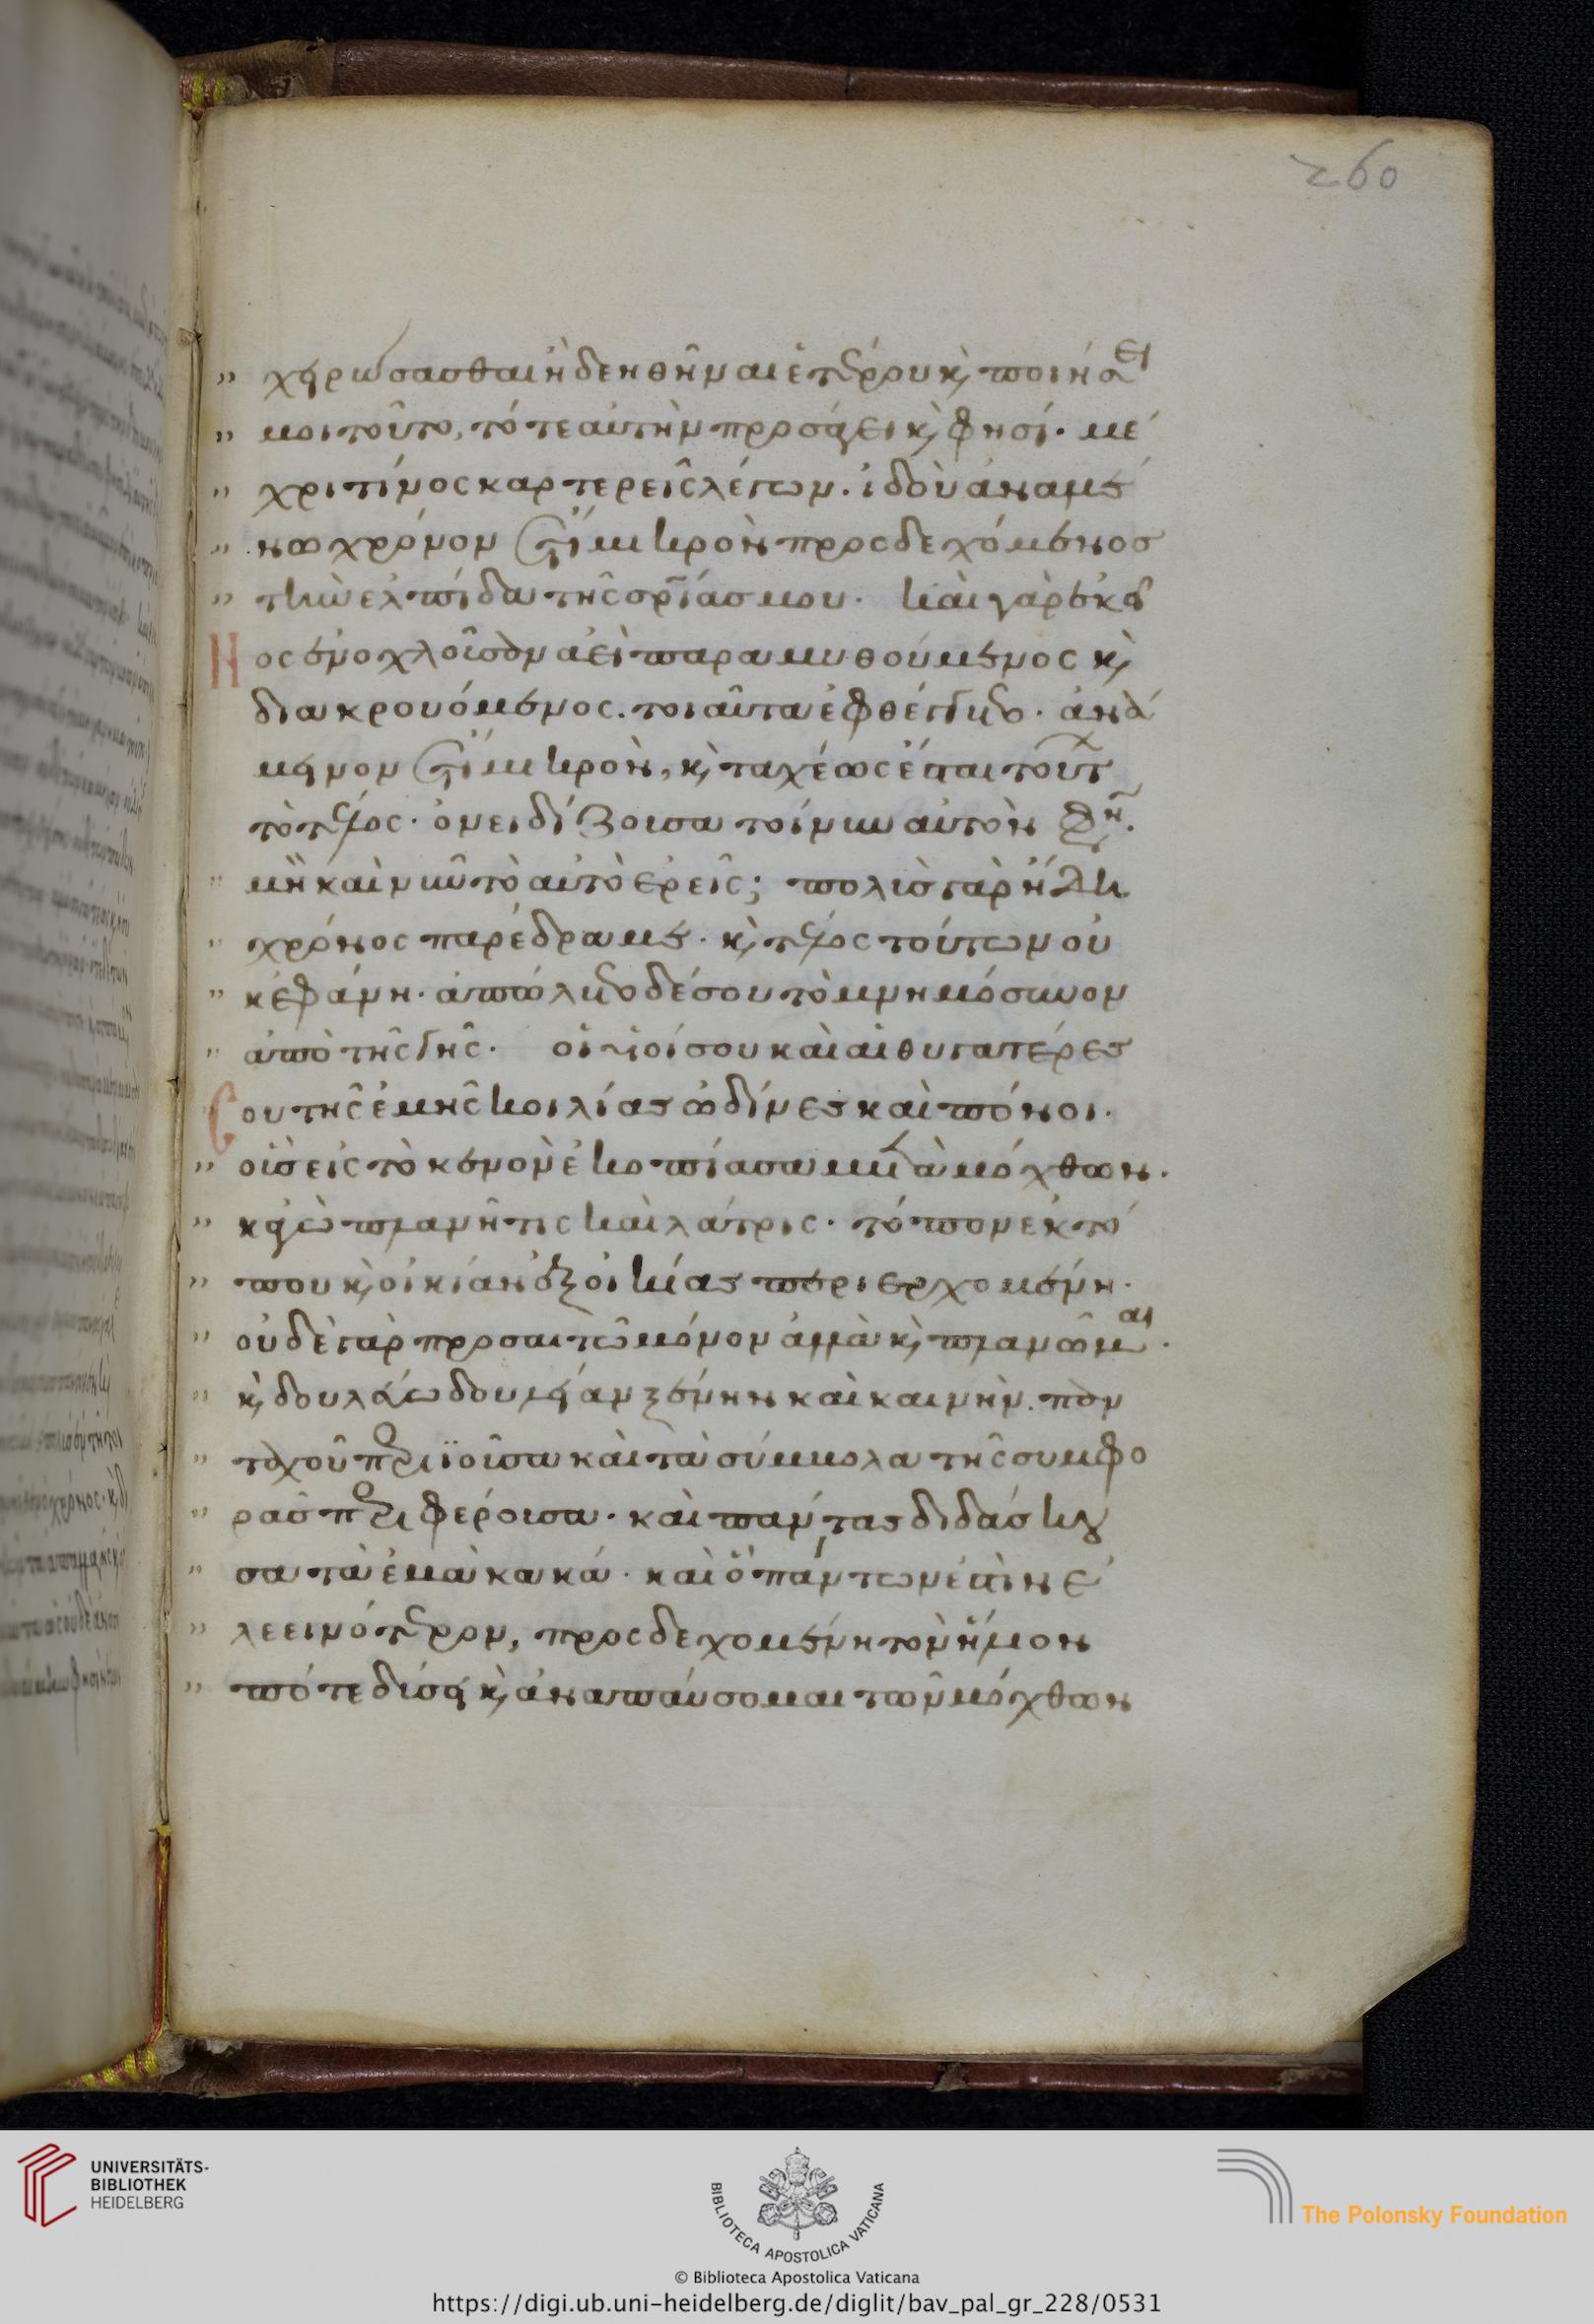 260
χειρώσασθαι ἢ δεηθῆναι ἑτέρου κ̀ ποιήσει
μοι τοῦτο, τότε αὐτὴν προσάγει κ̀ φησί· μέ
χρι τίνος καρτερεῖς λέγων· ἰδοὺ ἀναμέ
νω χρόνον ἔτι μικρὸν προσδεχόμενος
τὴν ἐλπίδα τῆς σρίας μου· καὶ γὰρ ἐκεῖ
νος ἐνοχλοῦσαν ἀεὶ παραμυθούμενος κ̀
διακρουόμενος· τοιαῦτα ἐφθέγγετο· ἀνά
μεινον ἔτι μικρὸν, κ̀ ταχέως ἔσται τούτων
τὸ τέλος· ὀνειδίζουσα τοίνυν αὐτὸν φη·
μὴ καὶ νῦν τὸ αὐτὸ ἐρεῖς; πολὺς γὰρ ἤδη
χρόνος παρέδραμε· κ̀ τέλος τούτων οὐ
κ ἐφάνη· ἀπώλετο δέ σου τὸ μνημόσυνον
ἀπὸ τῆς γῆς· οἱ υἱοί σου καὶ αἱ θυγατέρες
σου τῆς ἐμῆς κοιλίας ὠδίνες καὶ πόνοι·
οὓς εἰς τὸ κενὸν ἐκοπίασα μετὰ μόχθων·
κἀγὼ πλανῆτις καὶ λάτρις· τόπον ἐκ τό
που κ̀ οἰκίαν ἐξ οἰκίας περιερχομένη·
οὐδὲ γὰρ προσαιτῶ μόνον ἀλλὰ κ̀ πλανῶμαι·
κ̀ δουλεύω δουλείαν ξένην καὶ καινὴν· παν
ταχοῦ περιϊοῦσα καὶ τὰ σύμβολα τῆς συμφο
ρᾶς περιφέρουσα· καὶ πάντας διδάσκου
σα τὰ ἐμὰ κακά· καὶ ὃ πάντων ἐστὶν ἐ
λεεινότερον, προσδεχομένη τὸν ἥλιον
πότε δύσει κ̀ ἀναπαύσομαι τῶν μόχθων
UNIVERSITÄTS-
BIBLIOTHEK
HEIDELBERG
BIBLIOTECA APOSTOLICA VATICANA
The Polonsky Foundation
© Biblioteca Apostolica Vaticana
https://digi.ub.uni-heidelberg.de/diglit/bav_pal_gr_228/0531